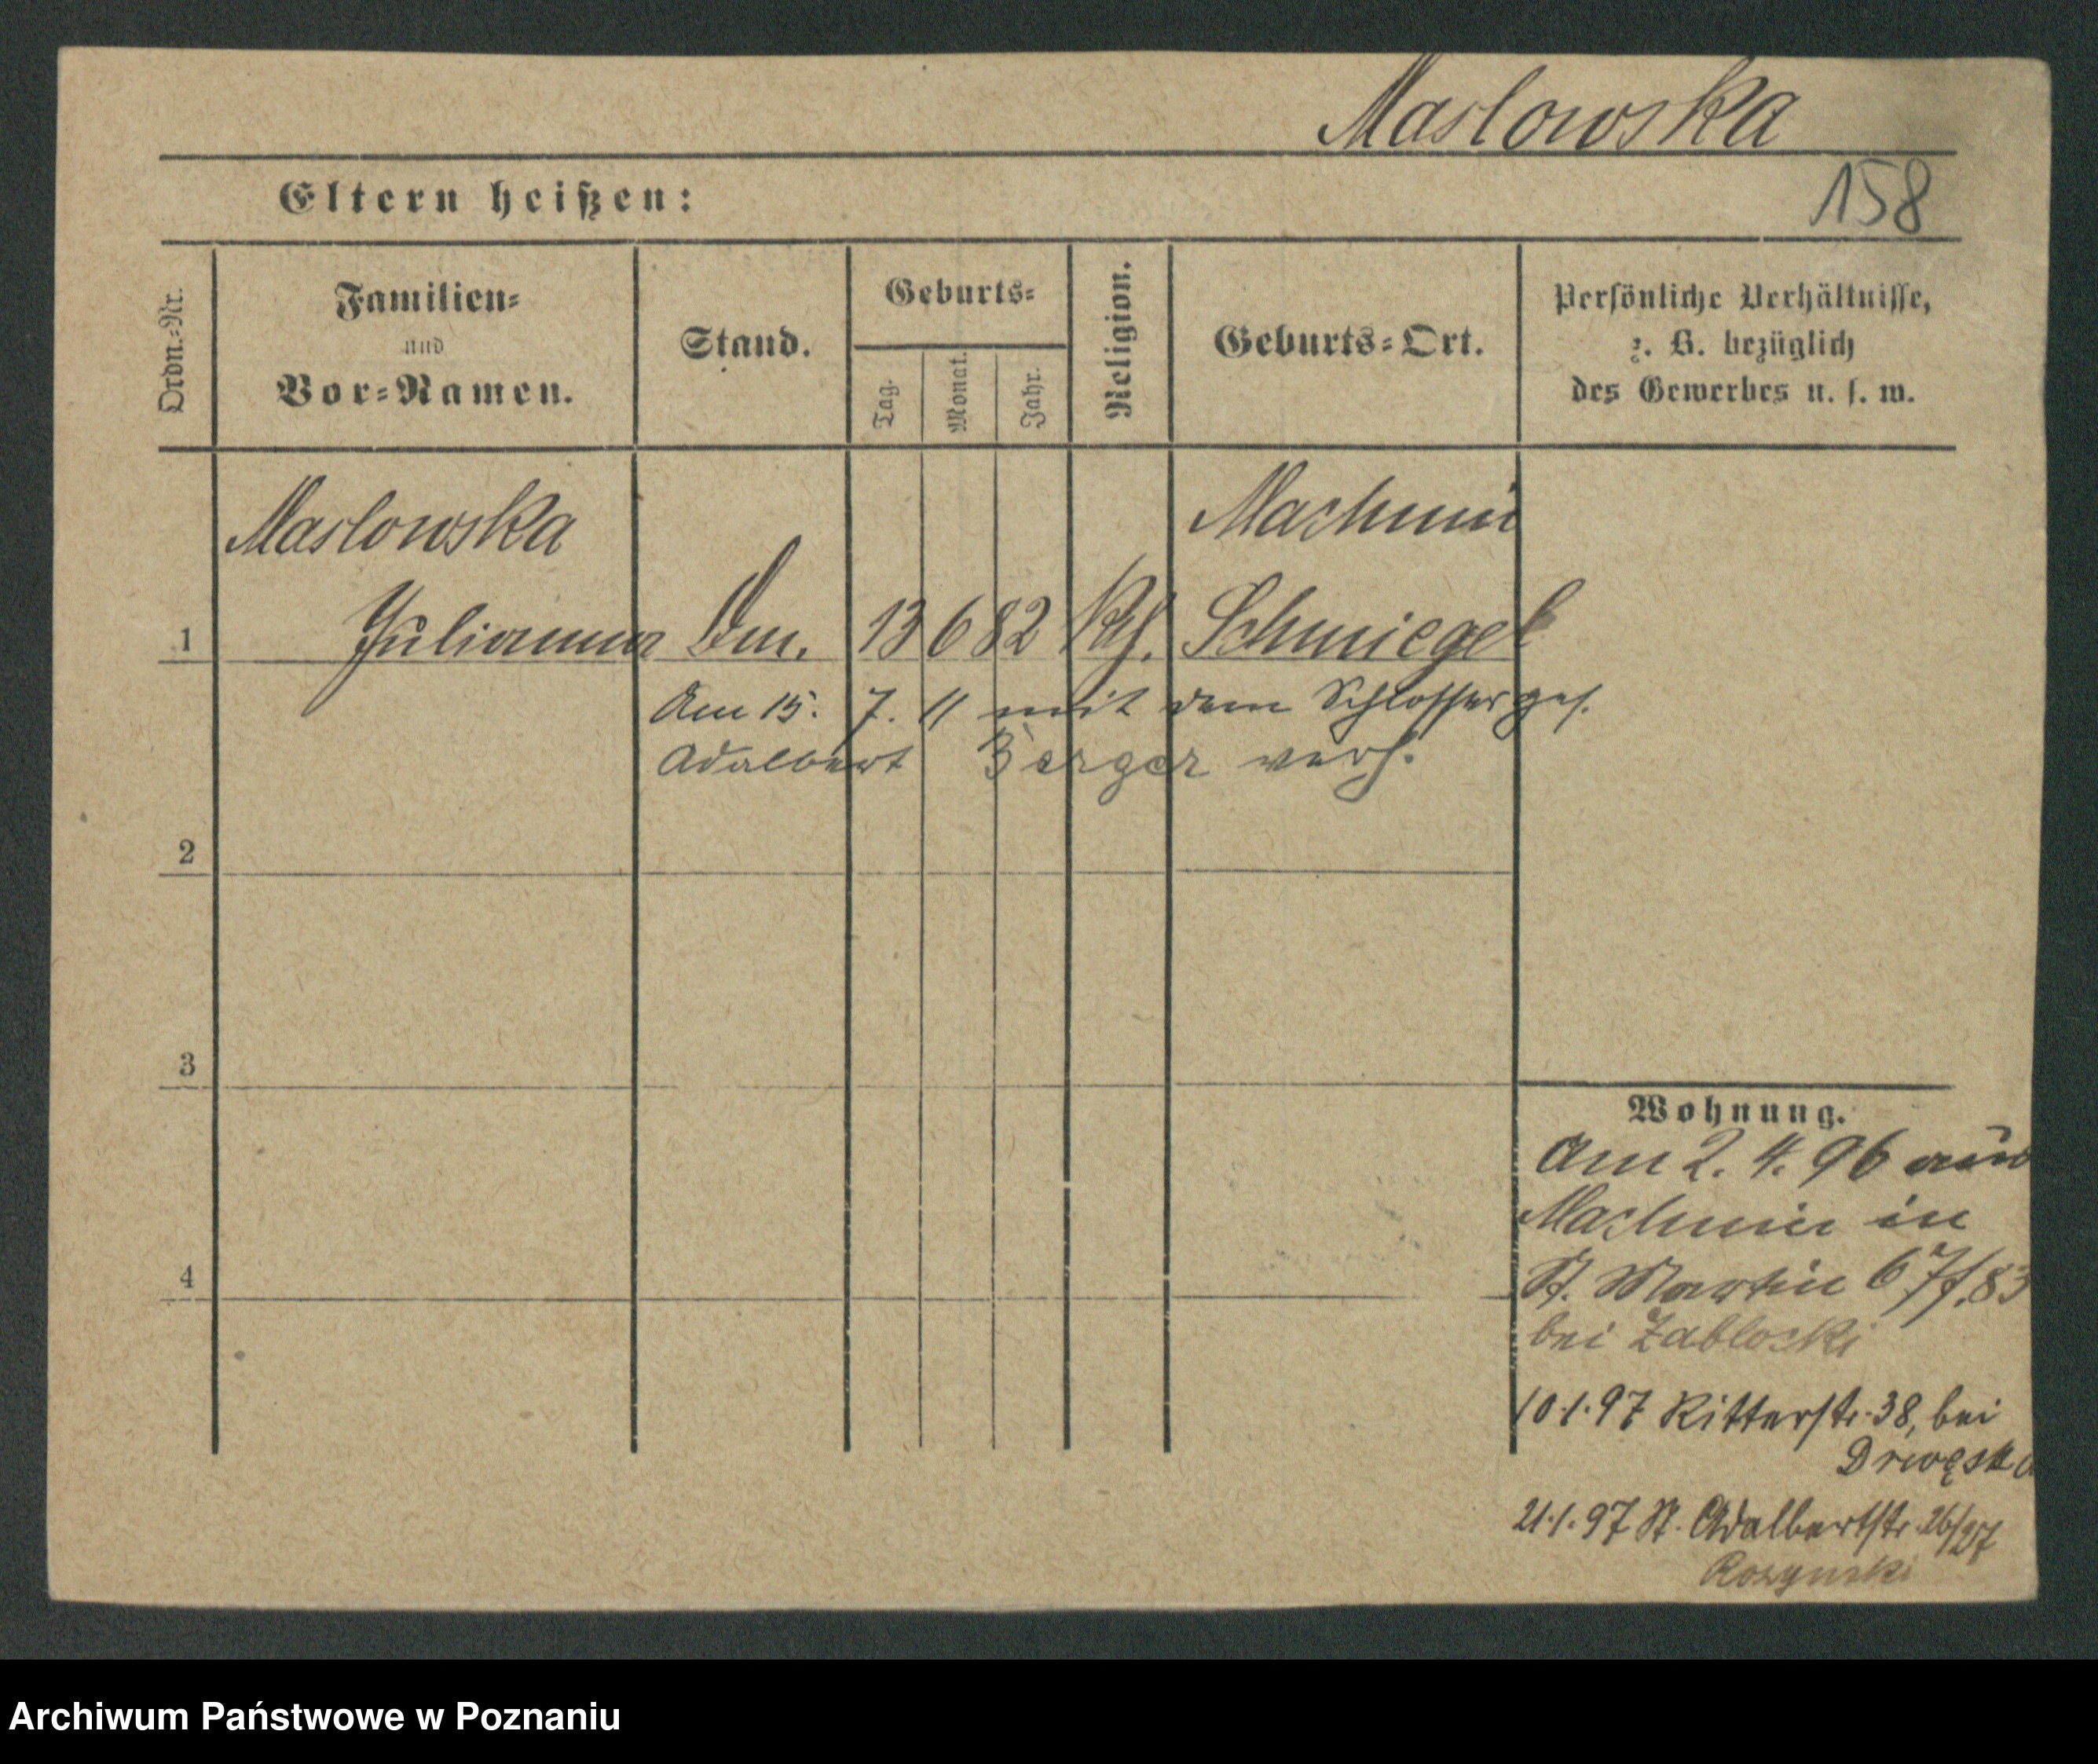 Maslowska
158
Eltern heißen:
Ordn.=Nr.
Familien=
und
Vor=Namen.
Stand.
Geburts=
Tag.
Monat.
Jahr.
Religion.
Geburts=Ort.
Persönliche Verhältnisse,
z. B. bezüglich
des Gewerbes u. s. w.
Maslowska
Machnin
1 Julianna 13 6 82 Kth. Schmiegel
Am 15. 7. 11 mit dem Schlosserges.
Adalbert Berger verh.
2
3
4
Wohnung.
Am 2. 4. 96 aus
Machnin in
St. Martin 67 83
bei Zabloski
10.1.97 Ritterstr. 38, bei
21.1.97 St. Adalbertstr. 26/27